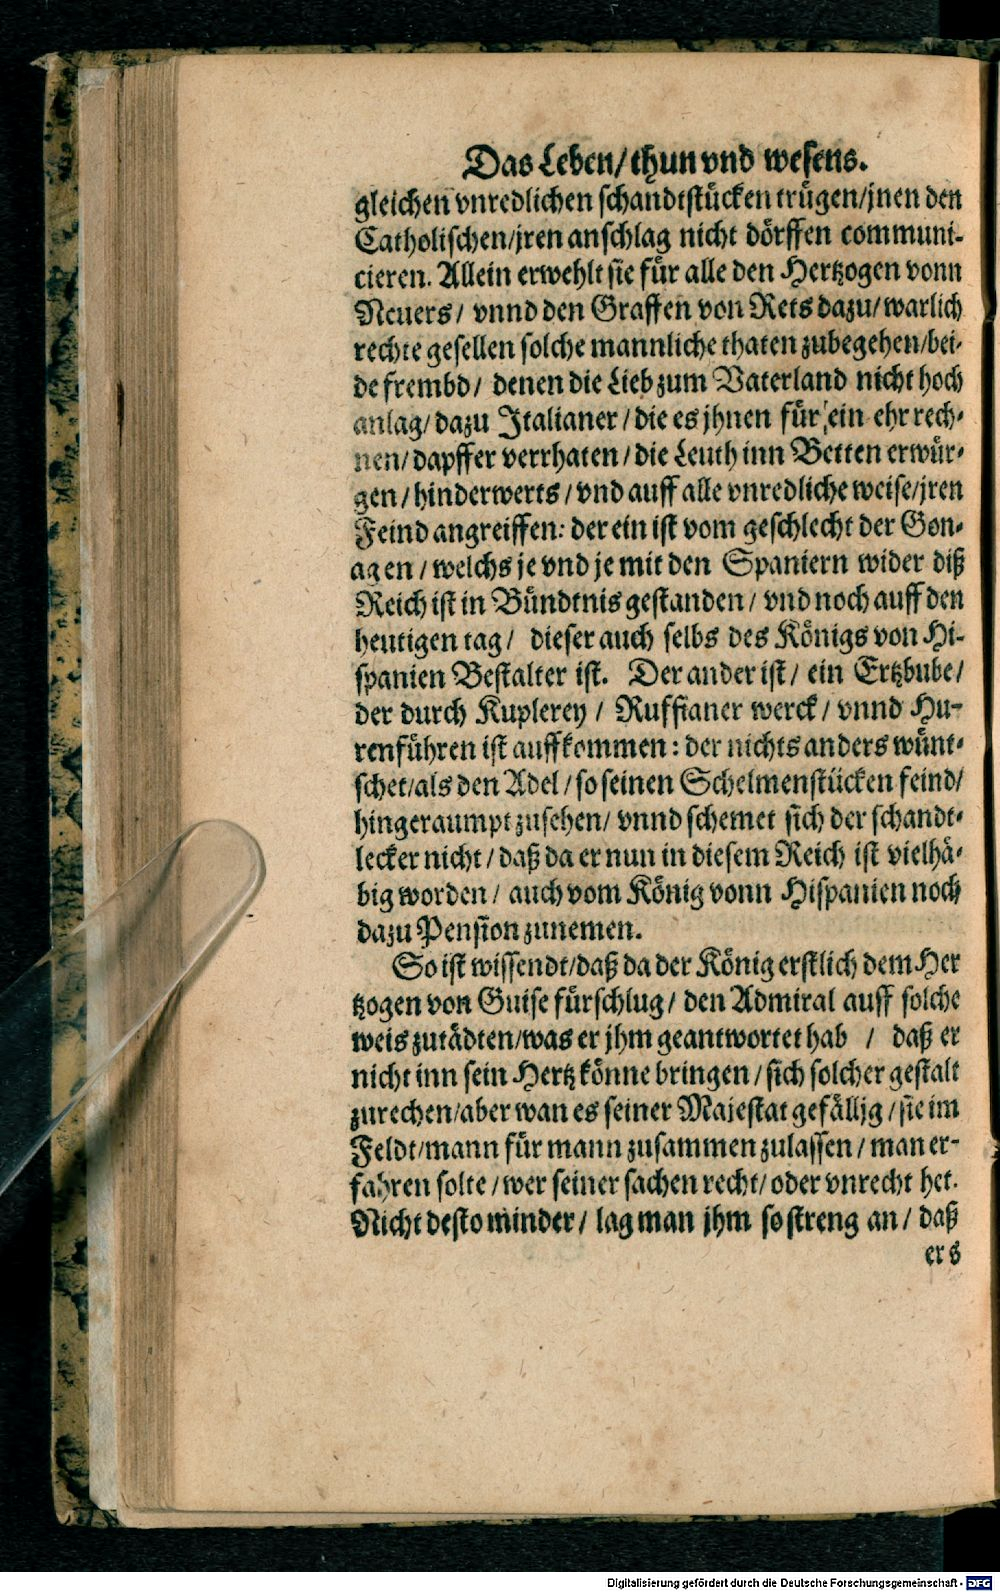 Das Leben/ thun vnd wesens.
gleichen vnredlichen schandtstücken trügen/ jnen den
Catholischen/ jren anschlag nicht dörffen communi-
cieren. Allein erwehlt sie für alle den Hertzogen vonn
Neuers/ vnnd den Graffen von Rets dazu/ warlich
rechte gesellen solche mannliche thaten zubegehen/ bei-
de frembd/ denen die Lieb zum Vaterland nicht hoch
anlag/ dazu Italianer/ die es jhnen für ein ehr rech-
nen/ dapffer verrhaten/ die Leuth inn Betten erwür-
gen/ hinderwerts/ vnd auff alle vnredliche weise/ jren
Feind angreiffen: der ein ist vom geschlecht der Gon-
agen/ welchs je vnd je mit den Spaniern wider diß
Reich ist in Bündtnis gestanden/ vnd noch auff den
heutigen tag/ dieser auch selbs des Königs von Hi-
spanien Bestalter ist. Der ander ist/ ein Ertzbube/
der durch Kuplerey/ Ruffianer werck/ vnnd Hu-
renführen ist auffkommen: der nichts anders wünt-
schet/ als den Adel/ so seinen Schelmenstücken feind/
hingeraumpt zusehen/ vnnd schemet sich der schandt-
lecker nicht/ daß da er nun in diesem Reich ist vielhä-
big worden/ auch vom König vonn Hispanien noch
dazu Pension zunemen.
So ist wissendt/ daß da der König erstlich dem Her
tzogen von Guise fürschlug/ den Admiral auff solche
weis zutädten/ was er jhm geantwortet hab / daß er
nicht inn sein Hertz könne bringen/ sich solcher gestalt
zurechen/ aber wan es seiner Majestat gefällig/ sie im
Feldt/ mann für mann zusammen zulassen/ man er-
fahren solte/ wer seiner sachen recht/ oder vnrecht het.
Nicht desto minder/ lag man jhm so streng an/ daß
ers
Digitalisierung gefördert durch die Deutsche Forschungsgemeinschaft - DFG